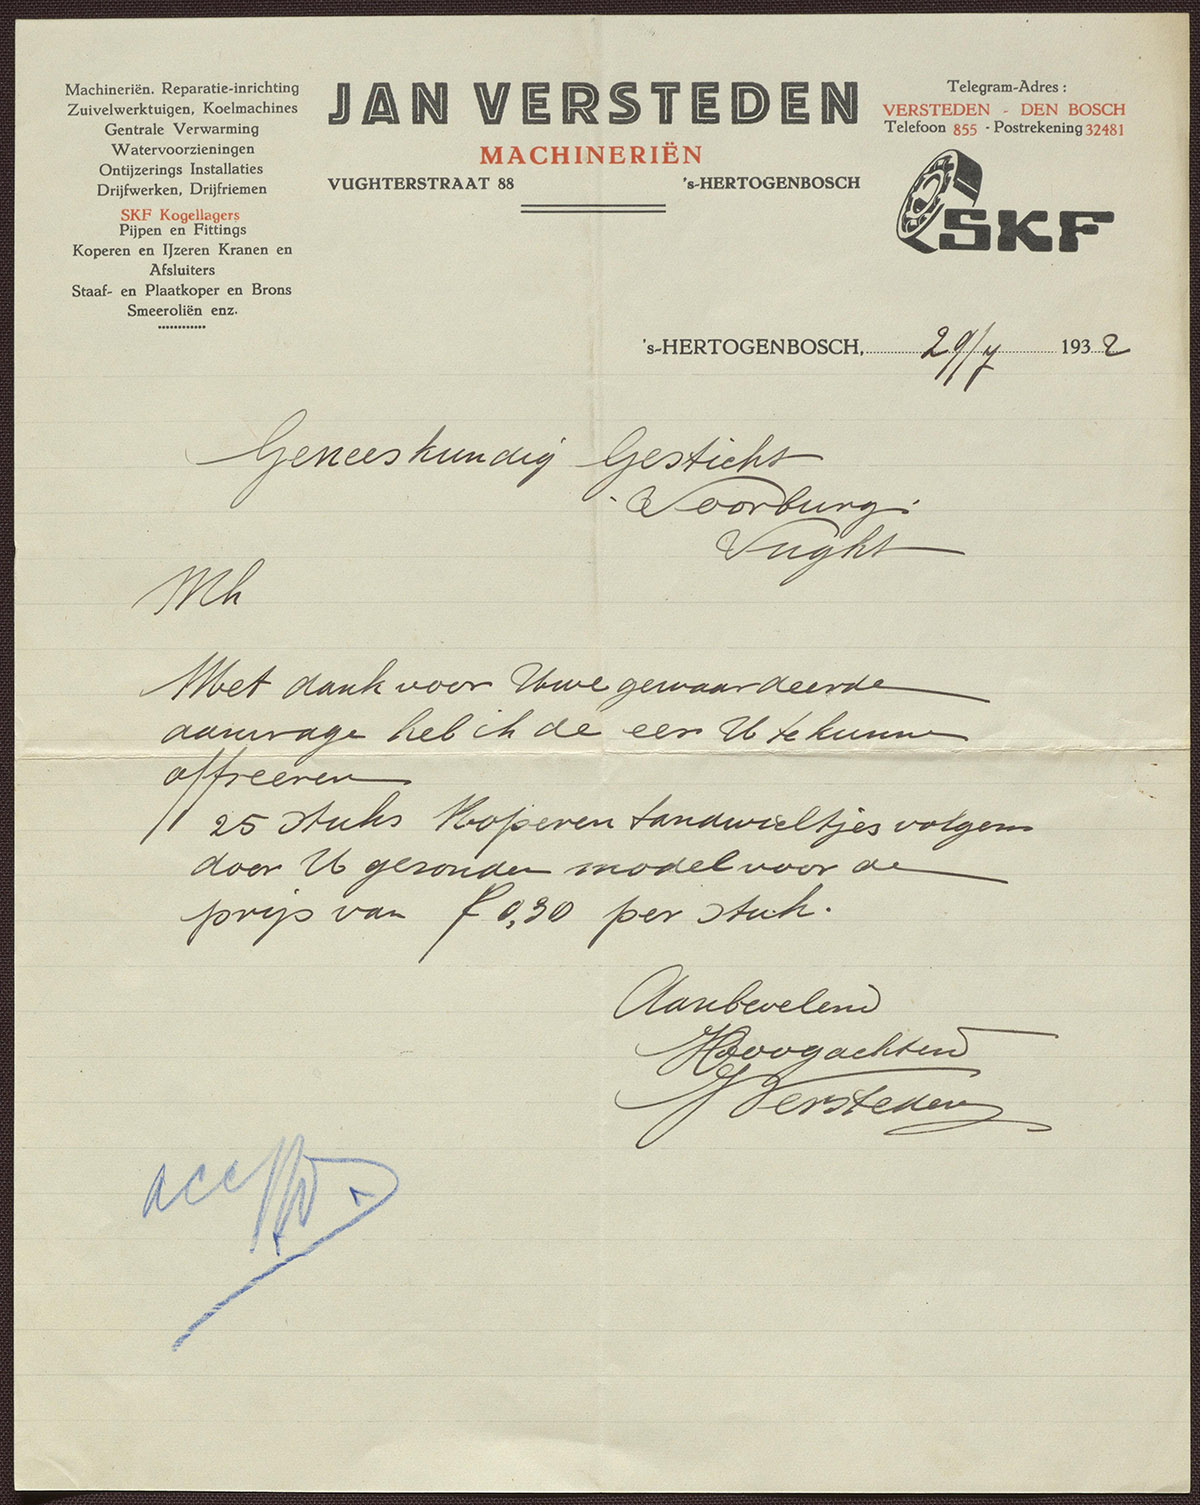 Machineriën. Reparatie-inrichting
Zuivelwerktuigen, Koelmachines
Gentrale Verwarming
Watervoorzieningen
Ontijzerings Installaties
Drijfwerken, Drijfriemen
SKF Kogellagers
Pijpen en Fittings
Koperen en IJzeren Kranen en
Afsluiters
Staaf- en Plaatkoper en Brons
Smeeroliën enz.
JAN VERSTEDEN
MACHINERIËN
VUGHTERSTRAAT 88 's-HERTOGENBOSCH
Telegram-Adres :
VERSTEDEN - DEN BOSCH
Telefoon 855 - Postrekening 32481
SKF
's-HERTOGENBOSCH, 29/7 1932
Geneeskundig Gesticht
"Voorburg"
Vught
Mh
Met dank voor Uwe gewaardeerde
aanvrage heb ik de eer U te kunnen
offreeren
25 stuks Koperen tandwieltjes volgens
door U gezonden model voor de
prijs van f 0,30 per stuk.
Aanbevelend
Hoogachtend
J Versteden
acc